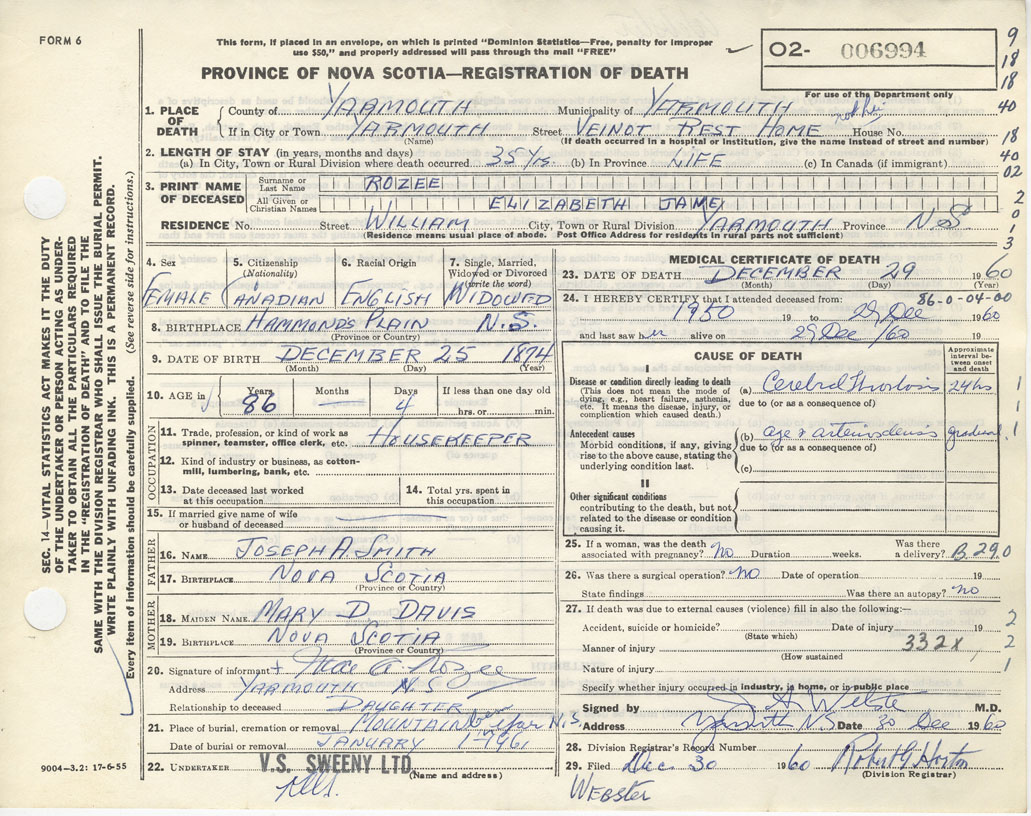 FORM 6
This form, if placed in an envelope, on which is printed "Dominion Statistics—Free, penalty for improper
use $50," and properly addressed will pass through the mail "FREE"
O2- 006994
For use of the Department only
PROVINCE OF NOVA SCOTIA—REGISTRATION OF DEATH
9
18
18
40
18
40
02
2
0
1
3
1. PLACE OF DEATH County of YARMOUTH Municipality of YARMOUTH
If in City or Town YARMOUTH Street VEINOT REST HOME House No.
(Name) (If death occurred in a hospital or institution, give the name instead of street and number)
2. LENGTH OF STAY (in years, months and days)
(a) In City, Town or Rural Division where death occurred. 35 Yrs (b) In Province LIFE (c) In Canada (if immigrant)
3. PRINT NAME OF DECEASED Surname or Last Name ROZEE
All Given or Christian Names ELIZABETH JANE
RESIDENCE No. Street WILLIAM City, Town or Rural Division YARMOUTH Province N.S.
(Residence means usual place of abode. Post Office Address for residents in rural parts not sufficient)
SEC. 14—VITAL STATISTICS ACT MAKES IT THE DUTY
OF THE UNDERTAKER OR PERSON ACTING AS UNDER-
TAKER TO OBTAIN ALL THE PARTICULARS REQUIRED
IN THE "REGISTRATION OF DEATH" AND TO FILE THE
SAME WITH THE DIVISION REGISTRAR WHO SHALL ISSUE THE BURIAL PERMIT.
WRITE PLAINLY WITH UNFADING INK. THIS IS A PERMANENT RECORD.
Every item of information should be carefully supplied. (See reverse side for instructions.)
4. Sex 5. Citizenship (Nationality) 6. Racial Origin 7. Single, Married, Widowed or Divorced (write the word)
FEMALE CANADIAN ENGLISH WIDOWED
8. BIRTHPLACE HAMMOND'S PLAIN N.S.
(Province or Country)
9. DATE OF BIRTH DECEMBER 25 1874
(Month) (Day) (Year)
10. AGE in Years 86 Months Days 4 If less than one day old
hrs. or min.
OCCUPATION
11. Trade, profession, or kind of work as
spinner, teamster, office clerk, etc. HOUSEKEEPER
12. Kind of industry or business, as cotton-
mill, lumbering, bank, etc.
13. Date deceased last worked
at this occupation
14. Total yrs. spent in
this occupation
15. If married give name of wife
or husband of deceased
FATHER
16. NAME JOSEPH A. SMITH
17. BIRTHPLACE NOVA SCOTIA
(Province or Country)
MOTHER
18. MAIDEN NAME MARY D. DAVIS
19. BIRTHPLACE NOVA SCOTIA
(Province or Country)
20. Signature of informant Rozee
Address YARMOUTH N.S
Relationship to deceased DAUGHTER
21. Place of burial, cremation or removal MOUNTAIN N.S.
Date of burial or removal JANUARY 1 1961
22. UNDERTAKER V.S. SWEENY LTD.
(Name and address)
9004-3.2: 17-6-55
MEDICAL CERTIFICATE OF DEATH
23. DATE OF DEATH DECEMBER 29 1960
(Month) (Day) (Year)
86-0-04-00
24. I HEREBY CERTIFY that I attended deceased from:
1950 19 to 29 Dec 1960
and last saw her alive on 29 Dec /60 19
CAUSE OF DEATH
Approximate
interval be-
tween onset
and death
I
Disease or condition directly leading to death
(This does not mean the mode of
dying, e.g., heart failure, asthenia,
etc. It means the disease, injury, or
complication which caused death.)
(a) Cerebral Thrombosis 24 hrs 1
due to (or as a consequence of) 1
Antecedent causes
Morbid conditions, if any, giving
rise to the above cause, stating the
underlying condition last.
(b) age & arteriosclerosis gradual 1
due to (or as a consequence of)
(c)
II
Other significant conditions
contributing to the death, but not
related to the disease or condition
causing it.
25. If a woman, was the death
associated with pregnancy? No Duration weeks. Was there
a delivery? B.290
26. Was there a surgical operation? No Date of operation 19
State findings Was there an autopsy? No
27. If death was due to external causes (violence) fill in also the following:—
Accident, suicide or homicide? Date of injury 19 2
(State which)
Manner of injury 332X 2
(How sustained
Nature of injury 1
Specify whether injury occurred in industry, in home, or in public place
Signed by Webster M.D.
Address Yarmouth N.S Date 30 Dec 1960
28. Division Registrar's Record Number
29. Filed Dec. 30 1960 Robert G. Horton
(Division Registrar)
WEBSTER